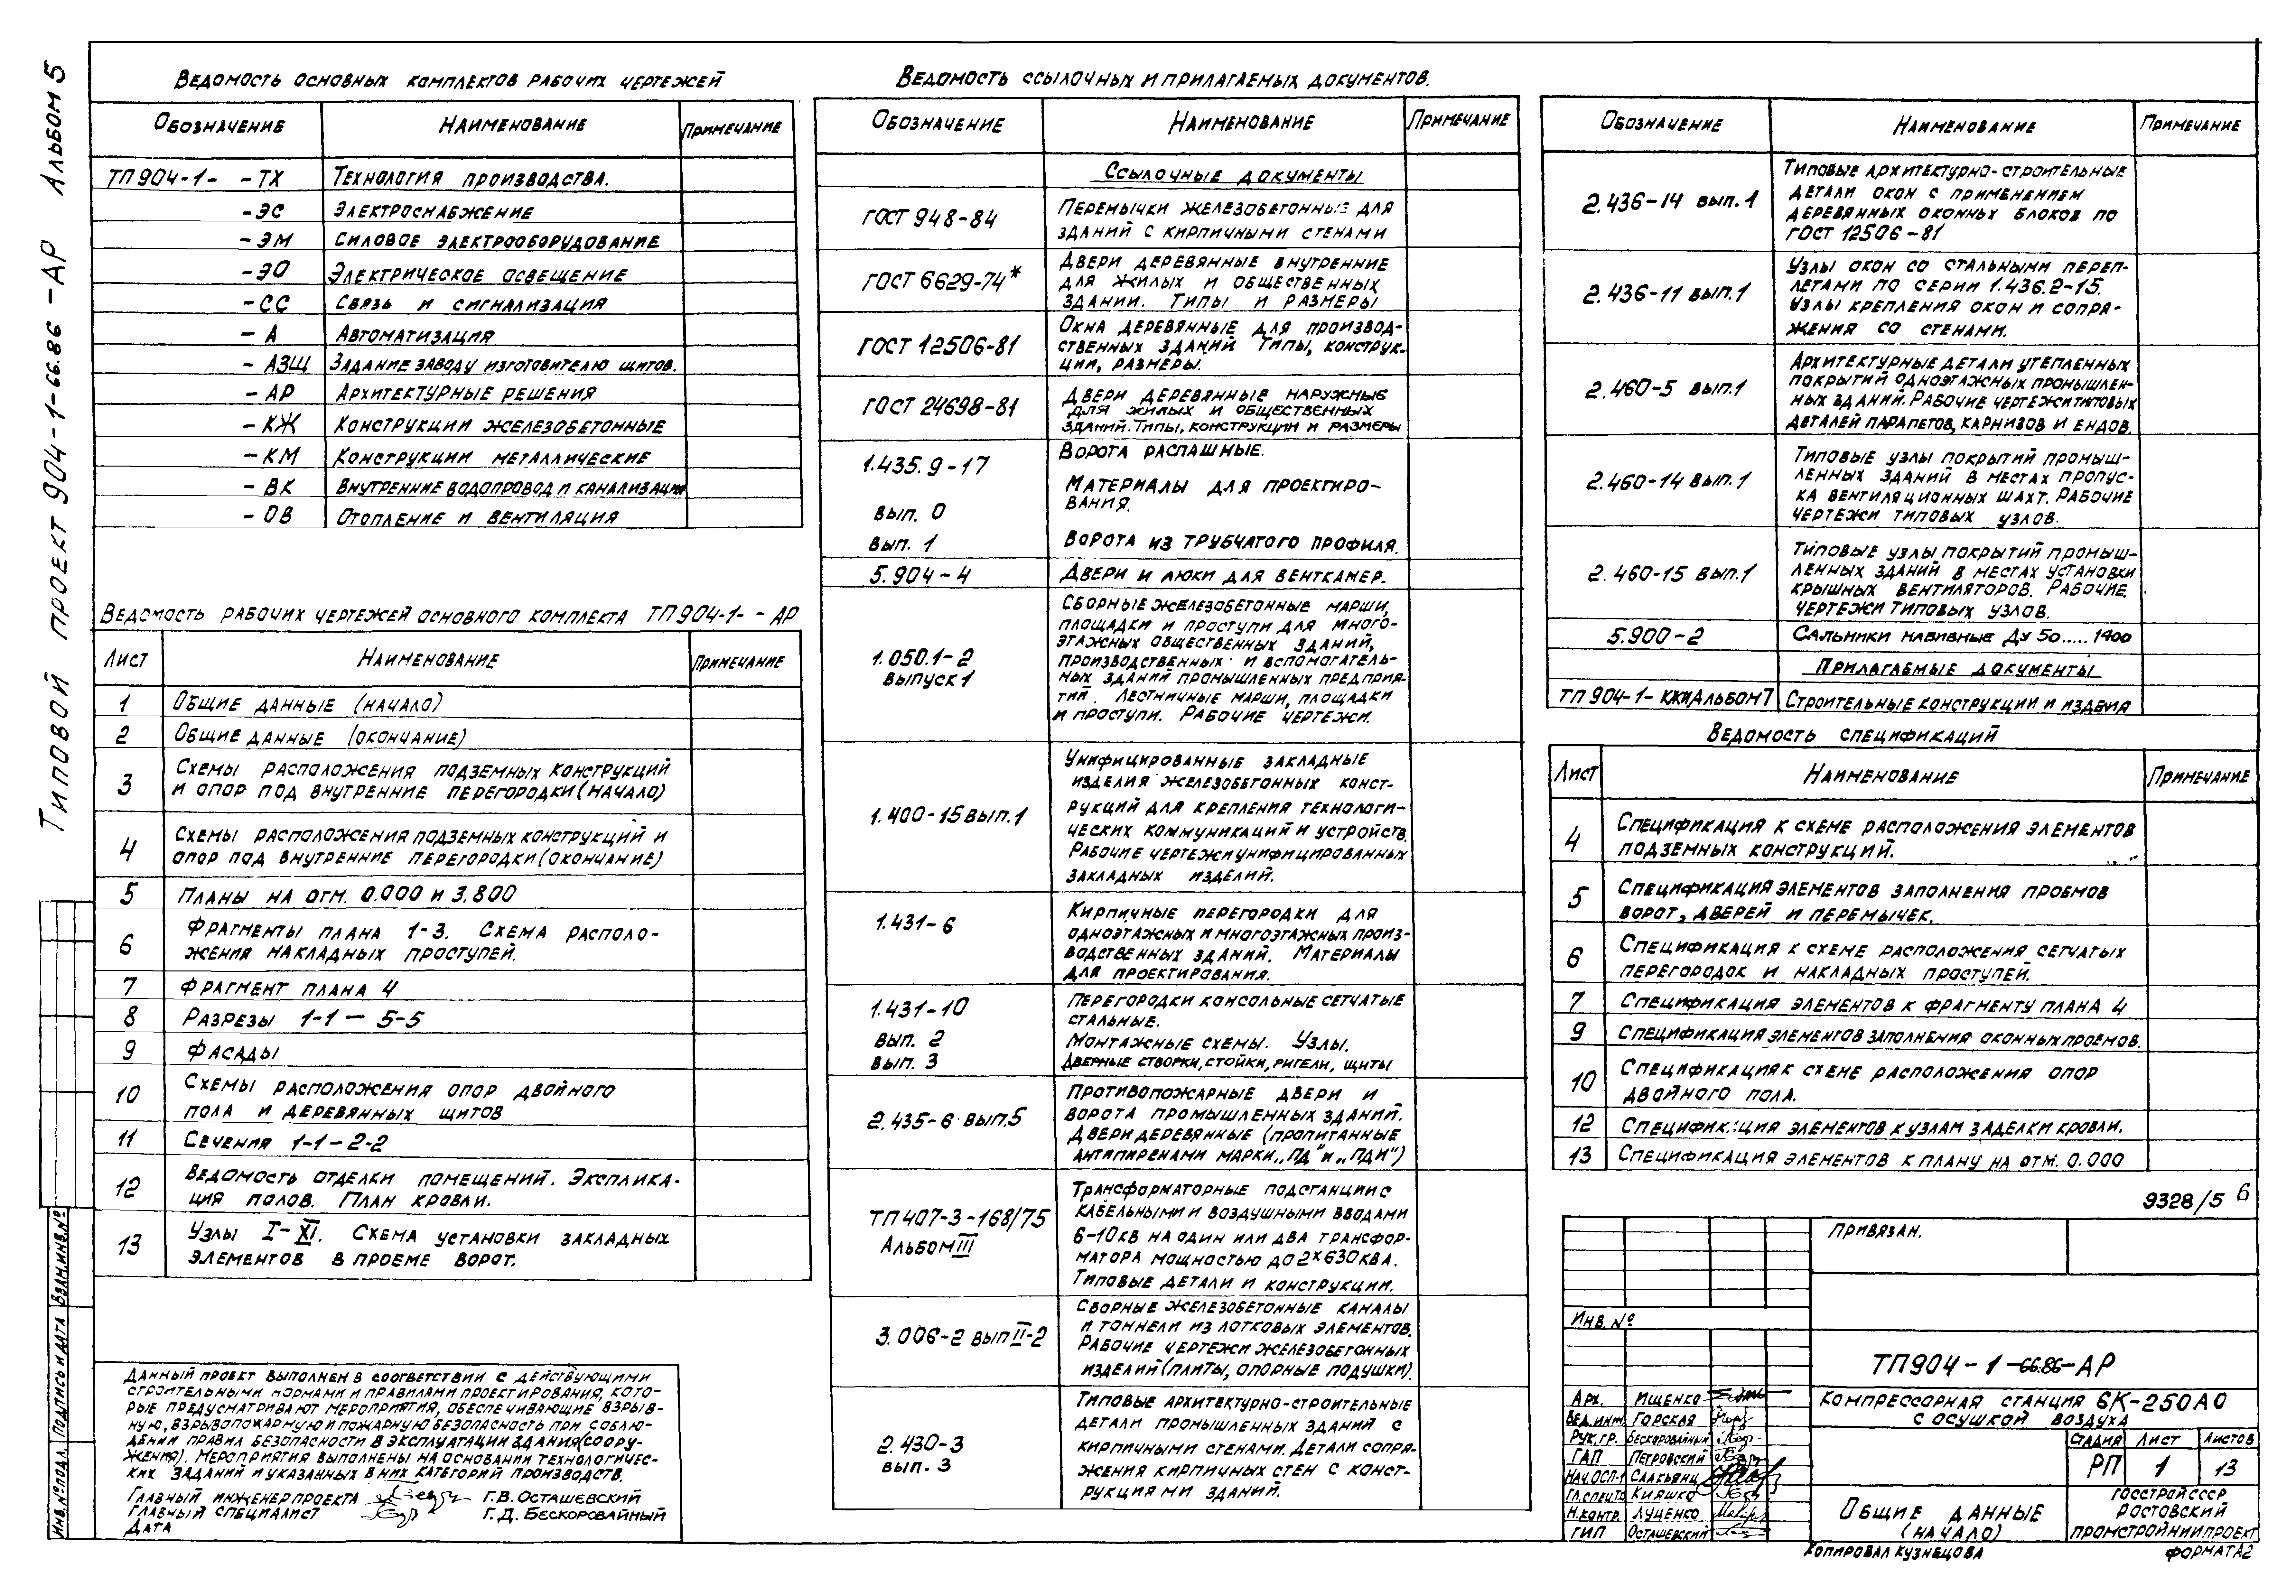 Типовой проект 904-1-66.86 -АР Альбом 5
Ведомость основных комплектов рабочих чертежей
Обозначение Наименование Примечание
ТП904-1- -ТХ Технология производства.
-ЭС Электроснабжение
-ЭМ Силовое электрооборудование
-ЭО Электрическое освещение
-СС Связь и сигнализация
-А Автоматизация
-АЗЩ Задание заводу изготовителю щитов.
-АР Архитектурные решения
-КЖ Конструкции железобетонные
-КМ Конструкции металлические
-ВК Внутренние водопровод и канализация
-ОВ Отопление и вентиляция
Ведомость рабочих чертежей основного комплекта ТП904-1- -АР
Лист Наименование Примечание
1 Общие данные (начало)
2 Общие данные (окончание)
3 Схемы расположения подземных конструкций
и опор под внутренние перегородки (начало)
4 Схемы расположения подземных конструкций и
опор под внутренние перегородки (окончание)
5 Планы на отм. 0.000 и 3.800
6 Фрагменты плана 1-3. Схема располо-
жения накладных проступей.
7 Фрагмент плана 4
8 Разрезы 1-1 — 5-5
9 Фасады
10 Схемы расположения опор двойного
пола и деревянных щитов
11 Сечения 1-1 – 2-2
12 Ведомость отделки помещений. Эксплика-
ция полов. План кровли.
13 Узлы I–XI. Схема установки закладных
элементов в проеме ворот.
Данный проект выполнен в соответствии с действующими
строительными нормами и правилами проектирования, кото-
рые предусматривают мероприятия, обеспечивающие взрыв-
ную, взрывопожарную и пожарную безопасность при соблю-
дении правил безопасности в эксплуатации здания (соору-
жения). Мероприятия выполнены на основании технологичес-
ких заданий и указанных в них категорий производств.
Главный инженер проекта Г.В. Осташевский
Главный специалист Г.Д. Бескоровайный
Дата
Взам.инв.№
Подпись и дата
Инв.№подл.
Ведомость ссылочных и прилагаемых документов.
Обозначение Наименование Примечание
Ссылочные документы
ГОСТ 948-84 Перемычки железобетонные для
зданий с кирпичными стенами
ГОСТ 6629-74* Двери деревянные внутренние
для жилых и общественных
зданий. Типы и размеры
ГОСТ 12506-81 Окна деревянные для производ-
ственных зданий Типы, конструк-
ции, размеры.
ГОСТ 24698-81 Двери деревянные наружные
для жилых и общественных
зданий. Типы, конструкции и размеры
1.435.9-17 Ворота распашные.
вып. 0 Материалы для проектиро-
вания.
вып. 1 Ворота из трубчатого профиля.
5.904-4 Двери и люки для венткамер.
1.050.1-2 выпуск 1 Сборные железобетонные марши,
площадки и проступи для много-
этажных общественных зданий,
производственных и вспомогатель-
ных зданий промышленных предприя-
тий. Лестничные марши, площадки
и проступи. Рабочие чертежи.
1.400-15 вып.1 Унифицированные закладные
изделия железобетонных конст-
рукций для крепления технологи-
ческих коммуникаций и устройств.
Рабочие чертежи унифицированных
закладных изделий.
1.431-6 Кирпичные перегородки для
одноэтажных и многоэтажных произ-
водственных зданий. Материалы
для проектирования.
1.431-10 Перегородки консольные сетчатые
стальные.
вып. 2 Монтажные схемы. Узлы.
вып. 3 Дверные створки, стойки, ригели, щиты
2.435-6 вып.5 Противопожарные двери и
ворота промышленных зданий.
Двери деревянные (пропитанные
антипиренами марки „ПД" и „ПДИ")
ТП 407-3-168/75 Альбом III Трансформаторные подстанции с
кабельными и воздушными вводами
6-10кв на один или два трансфор-
матора мощностью до 2×630ква.
Типовые детали и конструкции.
3.006-2 вып II-2 Сборные железобетонные каналы
и тоннели из лотковых элементов.
Рабочие чертежи железобетонных
изделий (плиты, опорные подушки).
2.430-3 вып. 3 Типовые архитектурно-строительные
детали промышленных зданий с
кирпичными стенами. Детали сопря-
жения кирпичных стен с конст-
рукциями зданий.
Обозначение Наименование Примечание
2.436-14 вып.1 Типовые архитектурно-строительные
детали окон с применением
деревянных оконных блоков по
ГОСТ 12506-81
2.436-11 вып.1 Узлы окон со стальными переп-
летами по серии 1.436.2-15.
Узлы крепления окон и сопря-
жения со стенами.
2.460-5 вып.1 Архитектурные детали утепленных
покрытий одноэтажных промышлен-
ных зданий. Рабочие чертежи типовых
деталей парапетов, карнизов и ендов.
2.460-14 вып.1 Типовые узлы покрытий промыш-
ленных зданий в местах пропус-
ка вентиляционных шахт. Рабочие
чертежи типовых узлов.
2.460-15 вып.1 Типовые узлы покрытий промыш-
ленных зданий в местах установки
крышных вентиляторов. Рабочие
чертежи типовых узлов.
5.900-2 Сальники набивные Ду 50.....1400
Прилагаемые документы
ТП 904-1- КЖИ Альбом 7 Строительные конструкции и изделия
Ведомость спецификаций
Лист Наименование Примечание
4 Спецификация к схеме расположения элементов
подземных конструкций.
5 Спецификация элементов заполнения проемов
ворот, дверей и перемычек.
6 Спецификация к схеме расположения сетчатых
перегородок и накладных проступей.
7 Спецификация элементов к фрагменту плана 4
9 Спецификация элементов заполнения оконных проемов.
10 Спецификация к схеме расположения опор
двойного пола.
12 Спецификация элементов к узлам заделки кровли.
13 Спецификация элементов к плану на отм. 0.000
9328/5 6
Привязан.
Инв.№
ТП904-1-66.86-АР
Арх. Ищенко
Вед.инж. Горская
Рук.гр. Бескоровайный
ГАП Петровский
Нач.ОСП-1 Саакьянц
Гл.спец.ТО Кияшко
Н.контр. Луценко
ГИП Осташевский
Компрессорная станция 6К-250АО
с осушкой воздуха
Стадия Лист Листов
РП 1 13
Общие данные
(начало)
Госстрой СССР
Ростовский
Промстройниипроект
Копировал Кузнецова
Формат А2